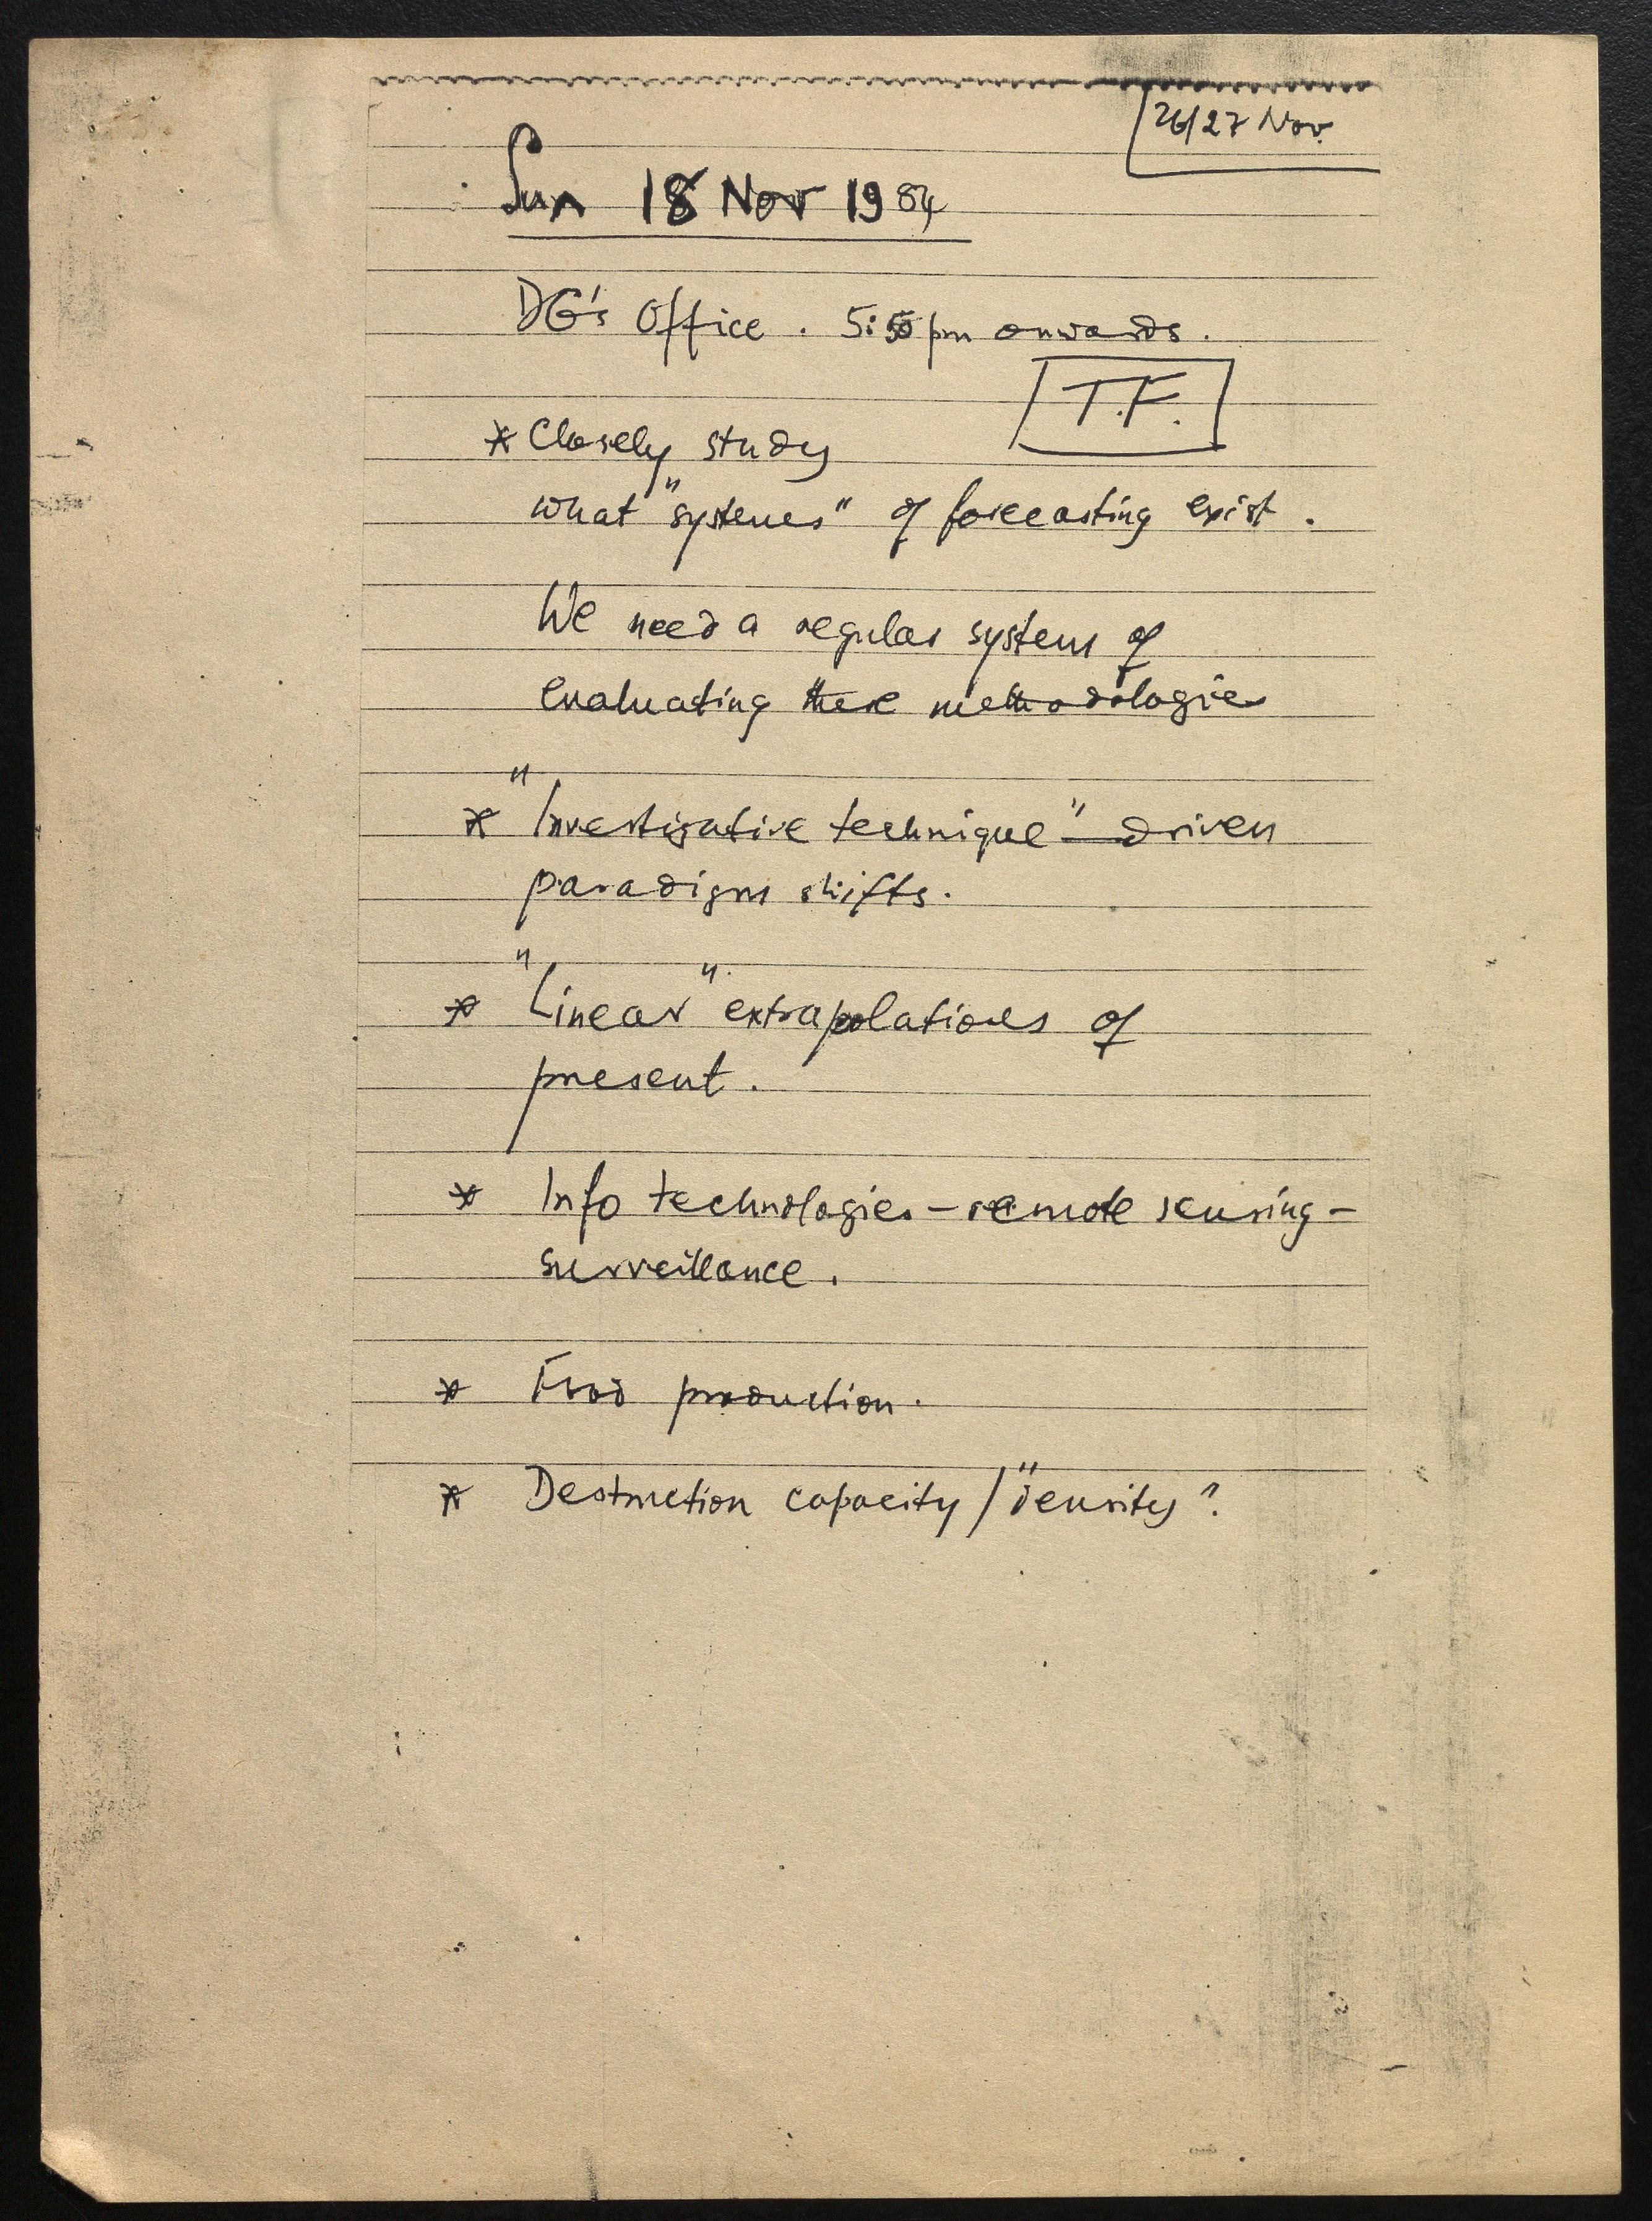 26/27 Nov.
Sun 18 Nov 1984
DG's Office. 5:50 pm onwards.
T.F.
* Closely study
what "systems" of forecasting exist.
We need a regular system of
evaluating these methodologies
* "Investigative technique"-driven
paradigm shifts.
* "Linear" extrapolations of
present.
* Info technologies - remote sensing -
surveillance.
* Food production.
* Destruction capacity / "density?